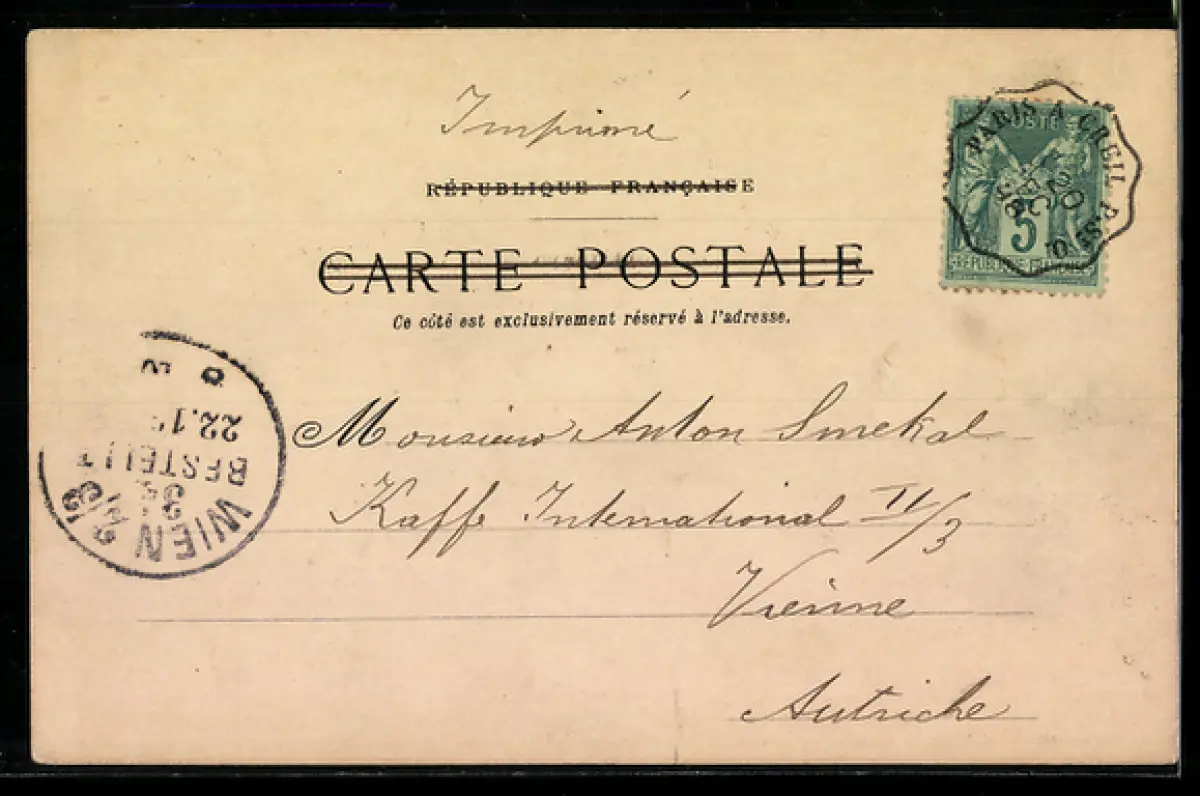 Imprimé
RÉPUBLIQUE FRANÇAISE
CARTE POSTALE
Ce côté est exclusivement réservé à l'adresse.
POSTE
5
RÉPUBLIQUE FRANÇAISE
PARIS A CREIL
20
Monsieur Anton Smekal
Kaffe International II/3
Vienne
Autriche
WIEN 2/3
BESTELLT
22.1